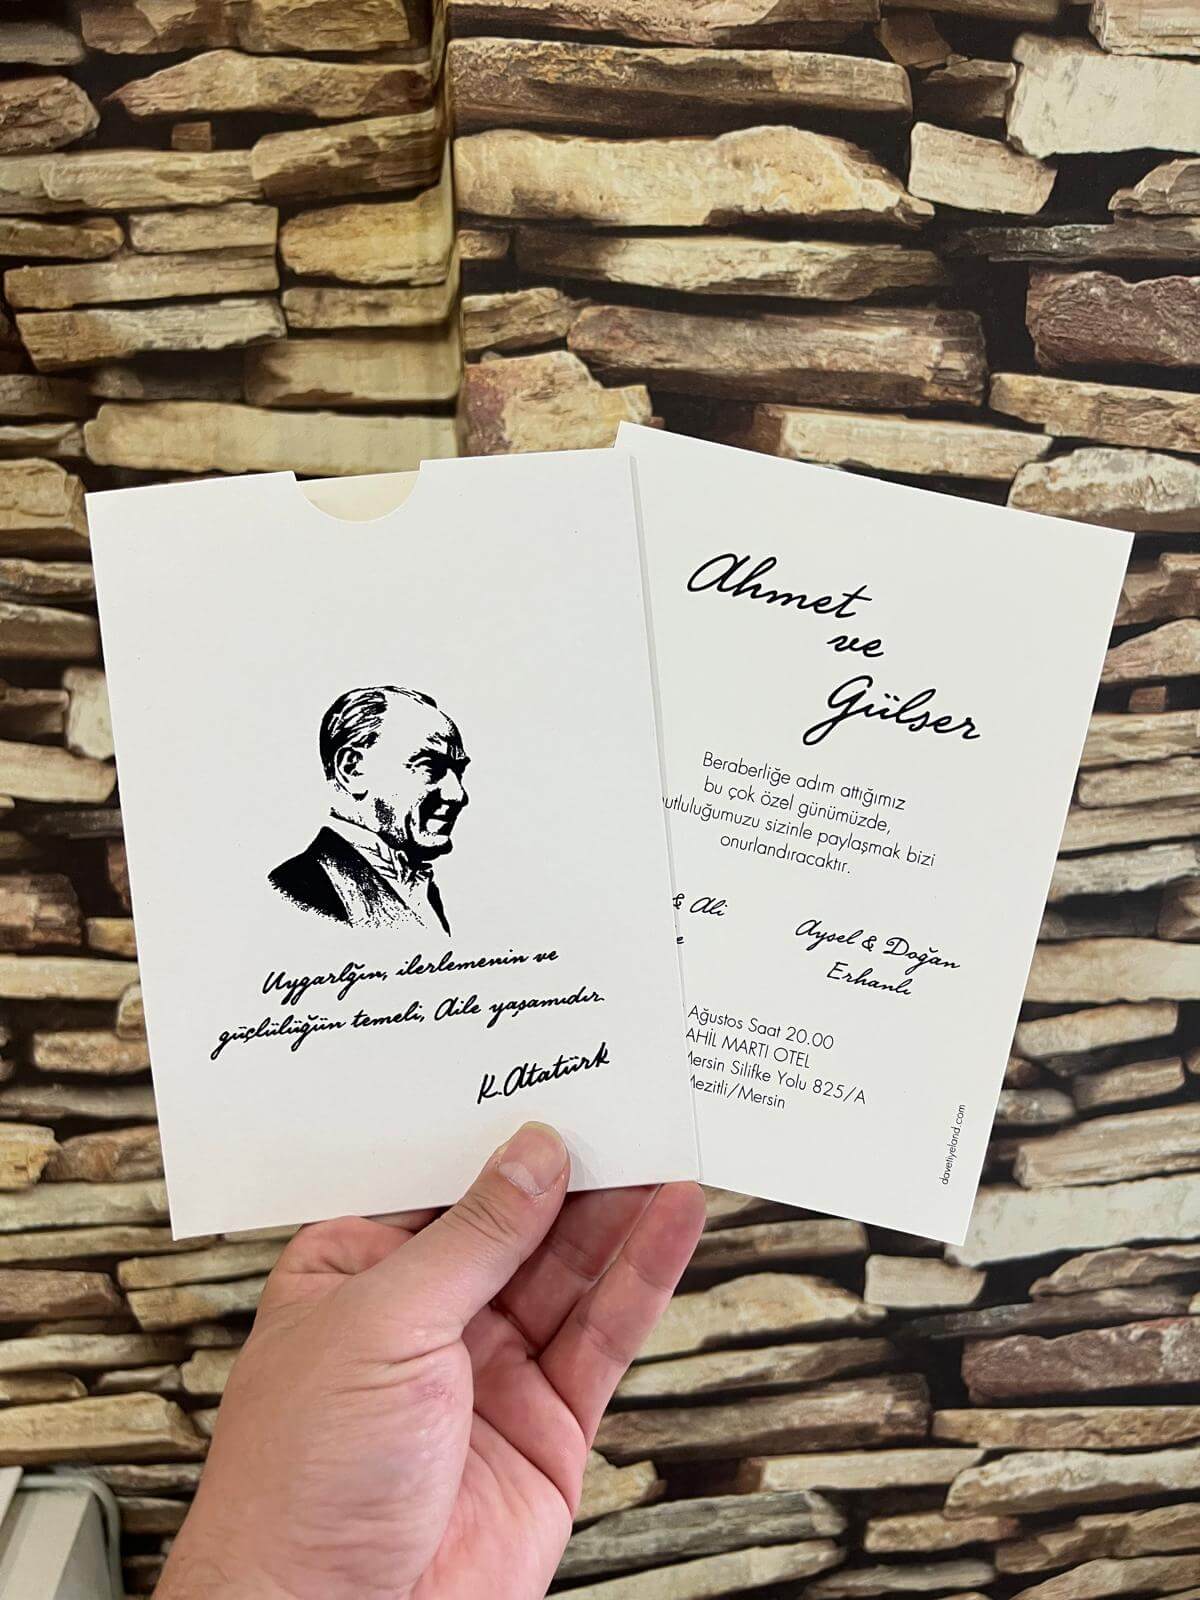 Uygarlğın, ilerlemenin ve
güçlülüğün temeli, Aile yaşamıdır.
K. Atatürk
Ahmet
ve
Gülser
Beraberliğe adım attığımız
bu çok özel günümüzde,
utluluğumuzu sizinle paylaşmak bizi
onurlandıracaktır.
& Ali
Aysel & Doğan
Erhanlı
Ağustos Saat 20.00
AHİL MARTI OTEL
Mersin Silifke Yolu 825/A
Mezitli/Mersin
davetiyeland.com